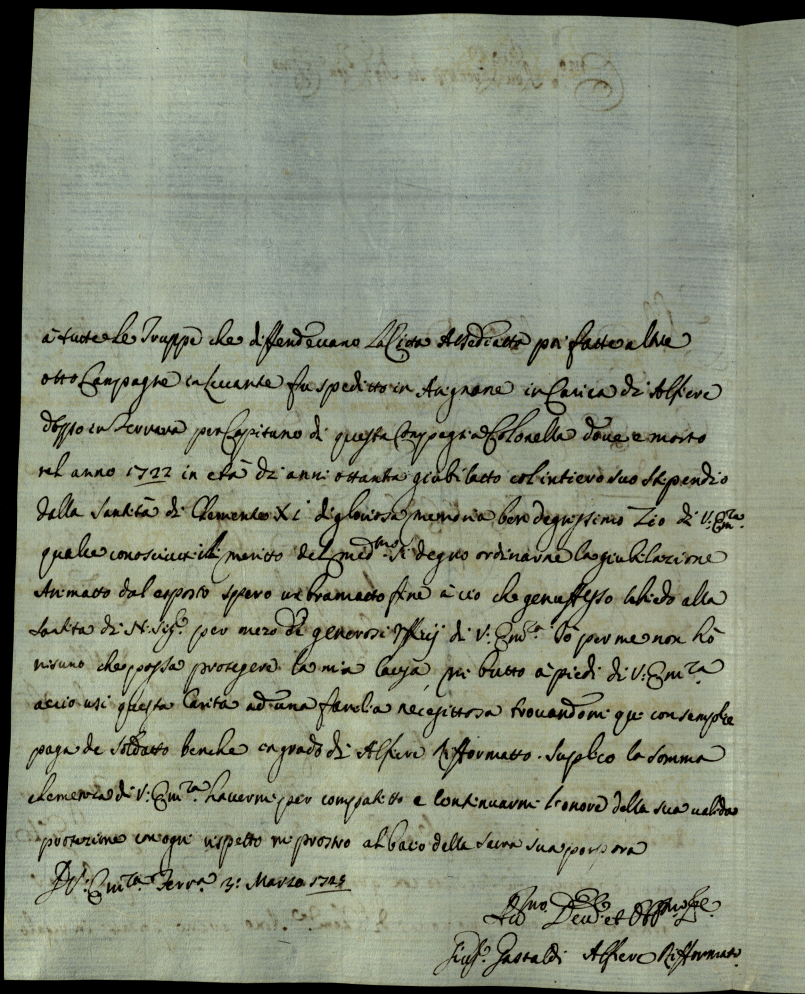 à tutte le Truppe che diffendevano la Citta Assediatta poi fatte altre
otto Campagne in Levante fu spedito in Avignone in Carica di Alfiere
doppo in Ferrara per Capitano di questa Compagnia Colonella dove e morto
nel anno 1722 in età di anni ottanta giubilatto col intiero suo stipendio
dalla Santità di Clemente XI di gloriosa memoria ben degnissimo Zio di V: Em.za
quale conosciuti il meritto del med.mo si degnò ordinarne la giubilazione
Animatto dal esposto spero un bramatto fine à cio che genuflesso chiedo alla
Santita di N: Sig.re per mezo de generosi Ufficij di V: Em.za Io per me non hò
nisuno che possa protegere la mia Causa, mi butto à piedi di V: Em.za
accio usi questa Carita ad una famelia necessittosa trovandomi qui con semplice
paga de Soldatto benche in grado di Alfiere Rifformatto. Suplico la somma
clemenza di V: Em.za havermi per compatitto e Continuarmi l'onore della sua valida
protezione con ogni rispetto mi prostro al bacio della Sacra sua porpora
D V: Em.za Ferr.a 3: Marzo
Dev.mo et Obb.mo
Gius.e Gastaldi Alfiere Rifformato